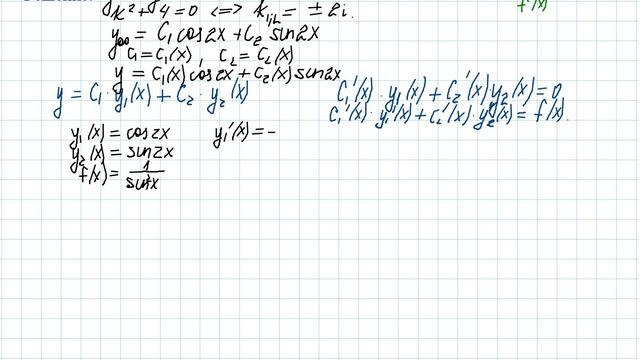 k² + 4 = 0 <=> k₁,₂ = ± 2i.
f(x)
y₀₀ = C₁ cos2x + C₂ sin2x
C₁ = C₁(x), C₂ = C₂(x)
y = C₁(x) cos2x + C₂(x) sin2x
y = C₁ · y₁(x) + C₂ · y₂(x)
C₁'(x) · y₁(x) + C₂'(x) y₂(x) = 0
C₁'(x) · y₁'(x) + C₂'(x) · y₂'(x) = f(x).
y₁(x) = cos2x y₁'(x) = -
y₂(x) = sin2x
f(x) = 1/sin²x